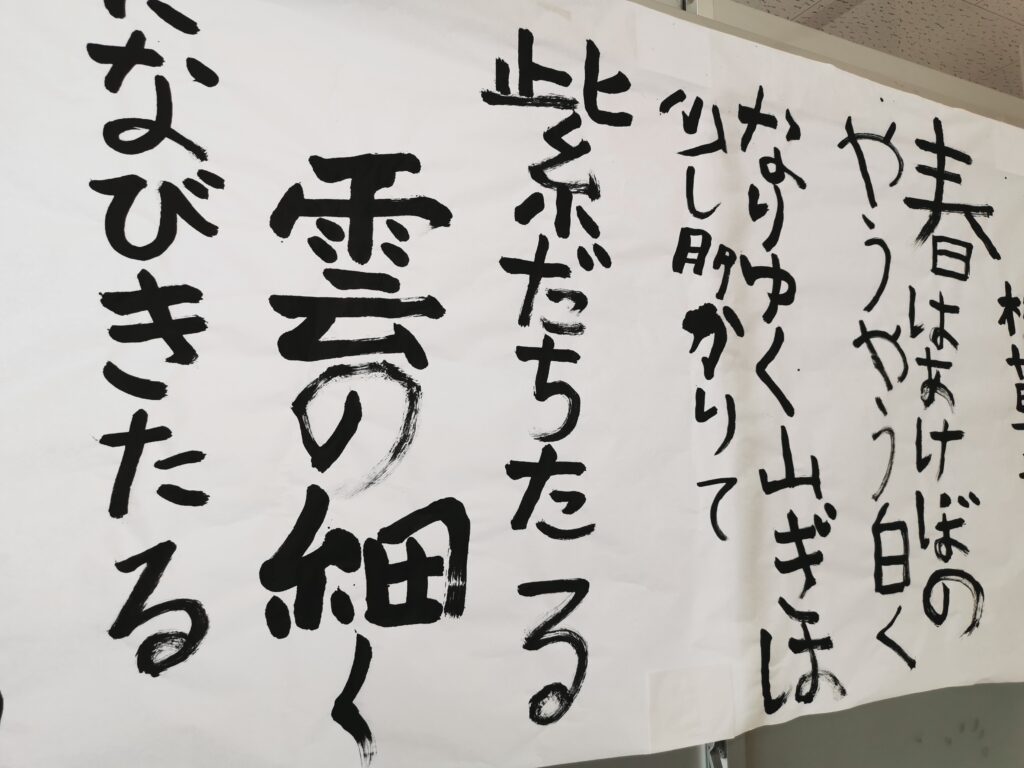 枕草子
春はあけぼの
やうやう白く
なりゆく山ぎは
少し明かりて
紫だちたる
雲の細く
たなびきたる